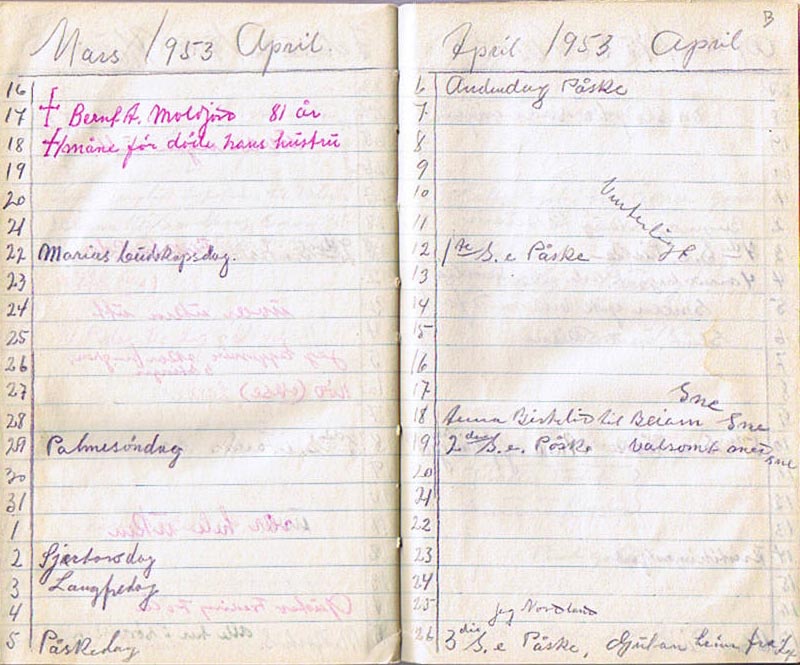 Mars 1953 April.
16
17 † Bernt A. Moldjord 81 år
18 † 1 måne før døde hans hustru
19
20
21
22 Marias budskapsdag.
23
24
25
26
27
28
29 Palmesöndag
30
31
1
2 Skjærtorsdag
3 Langfredag
4
5 Påskedag
B
April 1953 April
6 Andendag Påske
7
8
9
10 Vinterligt
11
12 1ste S. e Påske
13
14
15
16
17 Sne
18 til Beiarn Sne
19 2den S. e. Påske Valsomt
sne
20
21
22
23
24
25
Jeg Nordland
26 3die S. e Påske, heim fra